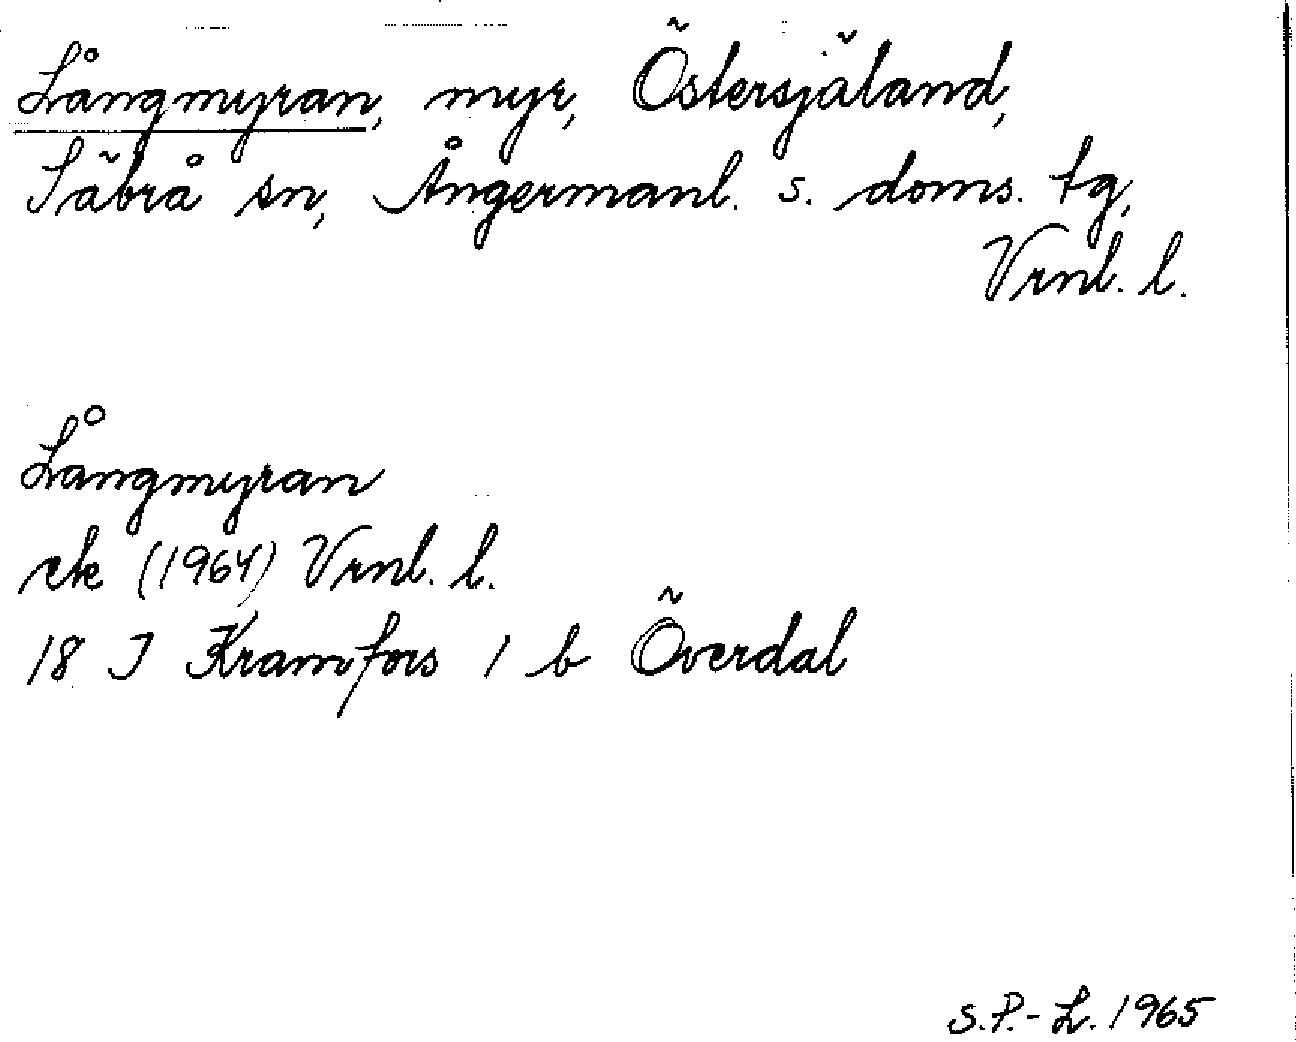 Långmyran, myr, Östersjäland,
Säbrå sn, Ångermanl. s. doms. tg,
Vrnl. l.
Långmyran
ek (1964) Vrnl. l.
18 I Kramfors 1 b Överdal
S.P.-L. 1965